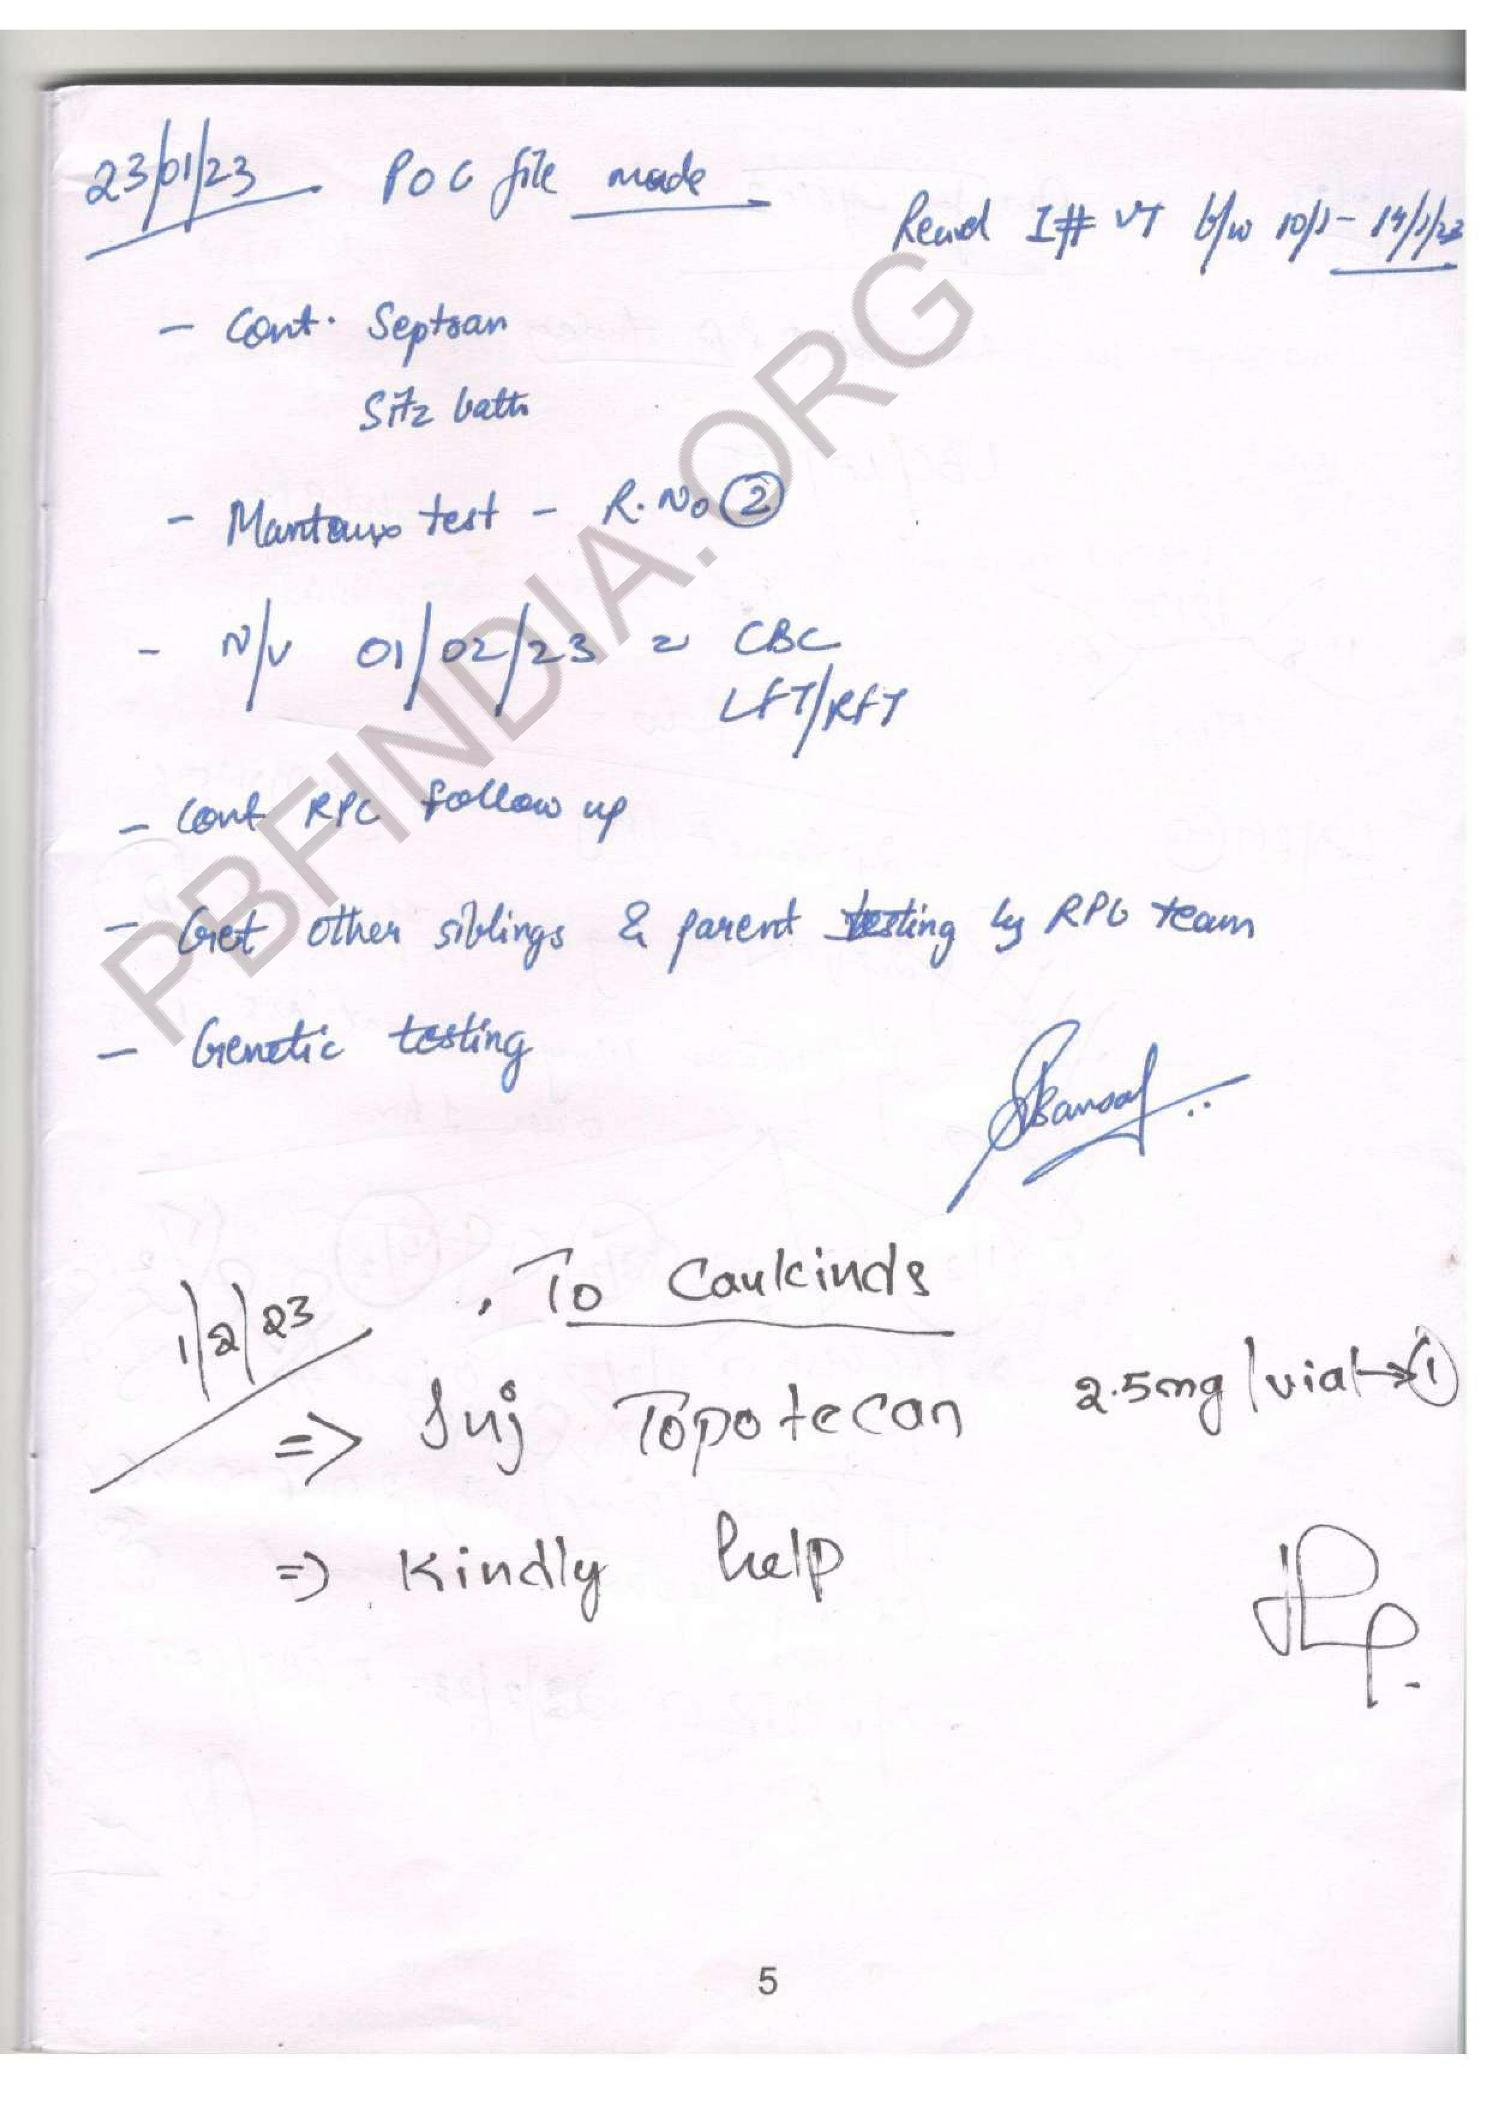 23/01/23 POC file made
Recvd I# VT b/w 10/1 - 14/1/23
- Cont. Septran
Sitz bath
- Mantoux test - R. No 2
- N/V 01/02/23 CBC
LFT/RFT
- Cont RPC follow up
- Get other siblings & parent testing by RPC team
- Genetic testing
Bansal
1/2/23 . To Cankinds
=> Inj Topotecan 2.5mg/vial → 1
=> Kindly help
PBFINDIA.ORG
5